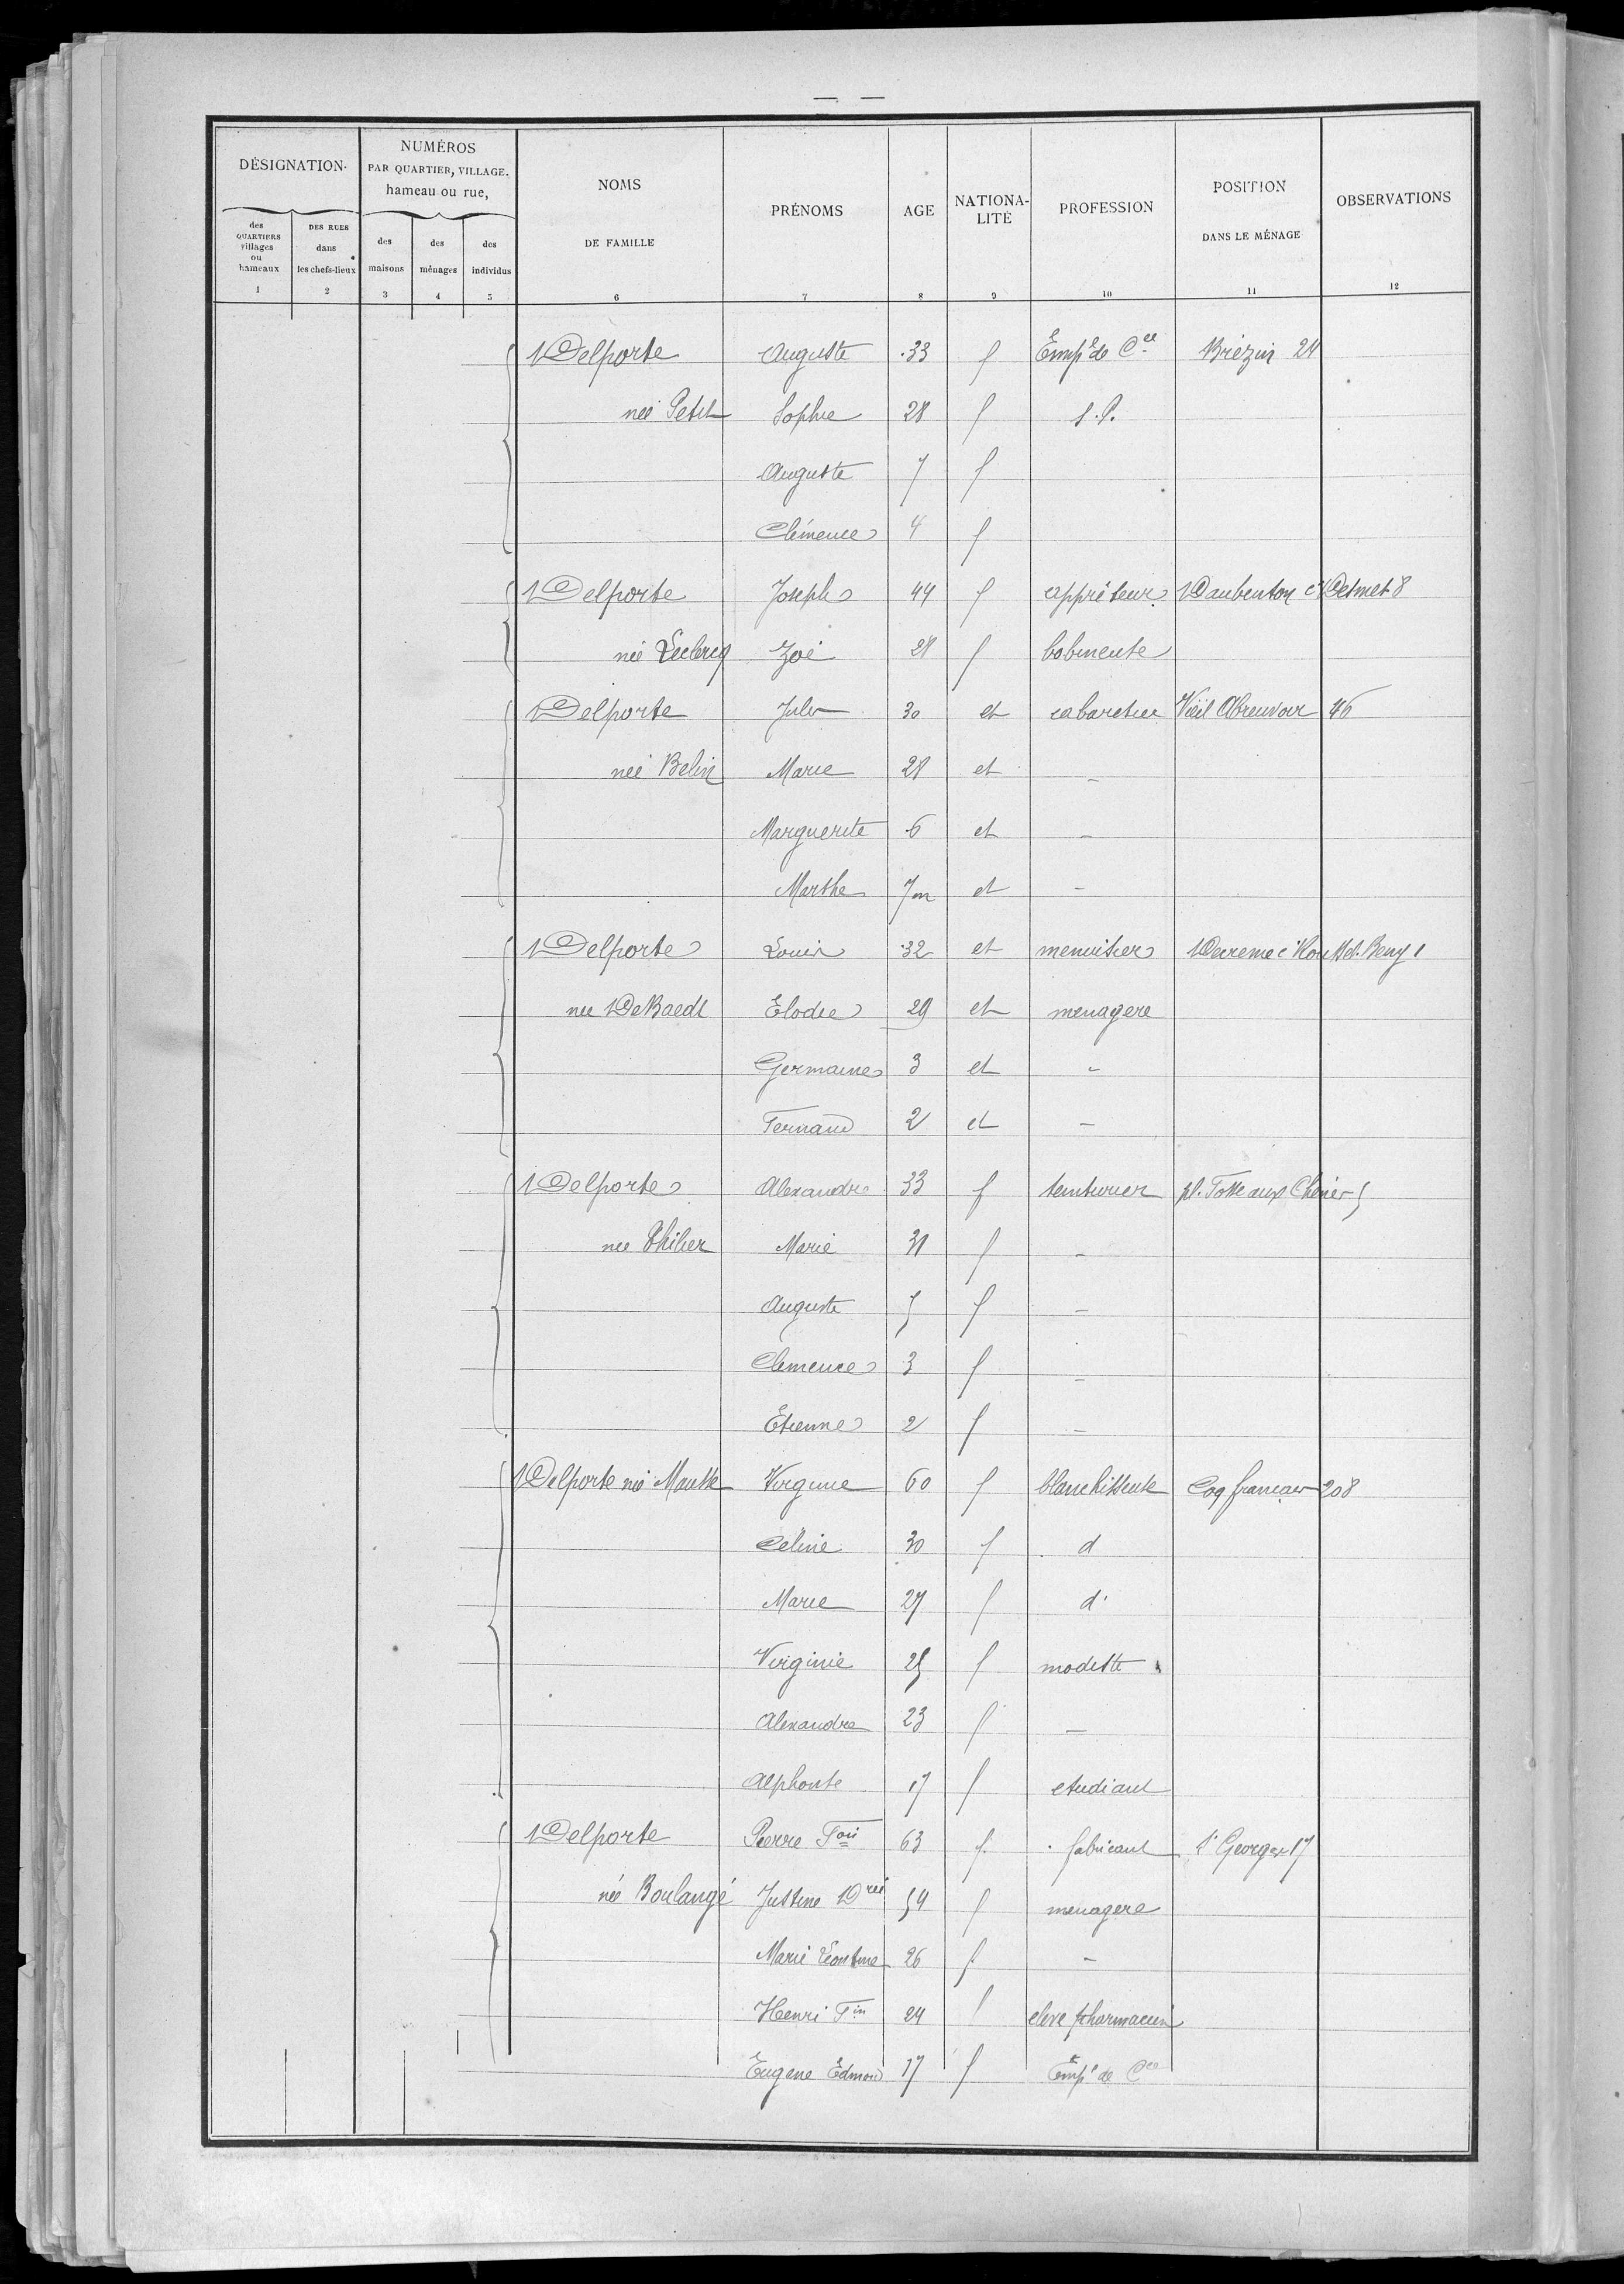 — —
DÉSIGNATION.
NUMÉROS
PAR QUARTIER, VILLAGE.
hameau ou rue,
NOMS
DE FAMILLE
PRÉNOMS
AGE
NATIONA-
LITÉ
PROFESSION
POSITION
DANS LE MÉNAGE
OBSERVATIONS
des
QUARTIERS
villages
ou
hameaux
DES RUES
dans
les chefs-lieux
des
maisons
des
ménages
des
individus
1 2 3 4 5 6 7 8 9 10 11 12
Delporte Auguste 33 f Empé de Cce Brézin 21
née Petit Sophie 28 f s.P.
Auguste 7 f
Clémence 4 f
Delporte Joseph 44 f apprêteur Daubenton Desmet 8
née Leclercq Zoé 28 f bobineuse
Delporte Jules 30 et cabaretier Vieil Abreuvoir 46
née Belin Marie 28 et –
Marguerite 6 et –
Marthe 7m et –
Delporte Louis 32 et menuisier 1
née DeBaedt Elodie 29 et menagere
Germaine 3 et –
Fernand 2 et –
Delporte Alexandre 33 f teinturier pl. Fosse aux Chênes 5
née Marie 31 f –
Auguste 5 f –
Clemence 3 f –
Etienne 2 f –
Delporte née Virginie 60 f blanchisseuse Coq français 208
Celine 30 f d
Marie 27 f d
Virginie 25 f modiste
Alexandre 23 f —
Alphonse 17 f etudiant
Delporte Pierre Fois 63 f fabricant St Georges 17
née Boulangé Justine 54 f menagere
Marie Léontine 26 f –
Henri Fin 24 f eleve pharmacien
Eugene Edmond 17 f Empé de Cce